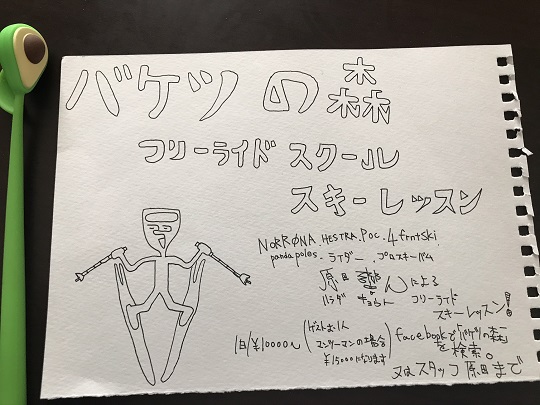 バケツの森
フリーライド スクール
スキーレッスン
NORRØNA.HESTRA.POC.4frntski.
pandapoles.ライダー.プロスキーバム
原田 んによる
ハラダ フリーライド
スキーレッスン!
1日/¥10000〜(ゲストお1人 マンツーマンの場合 ¥15000になります)
facebookで「バケツの森」
を検索。
又はスタッフ原田まで